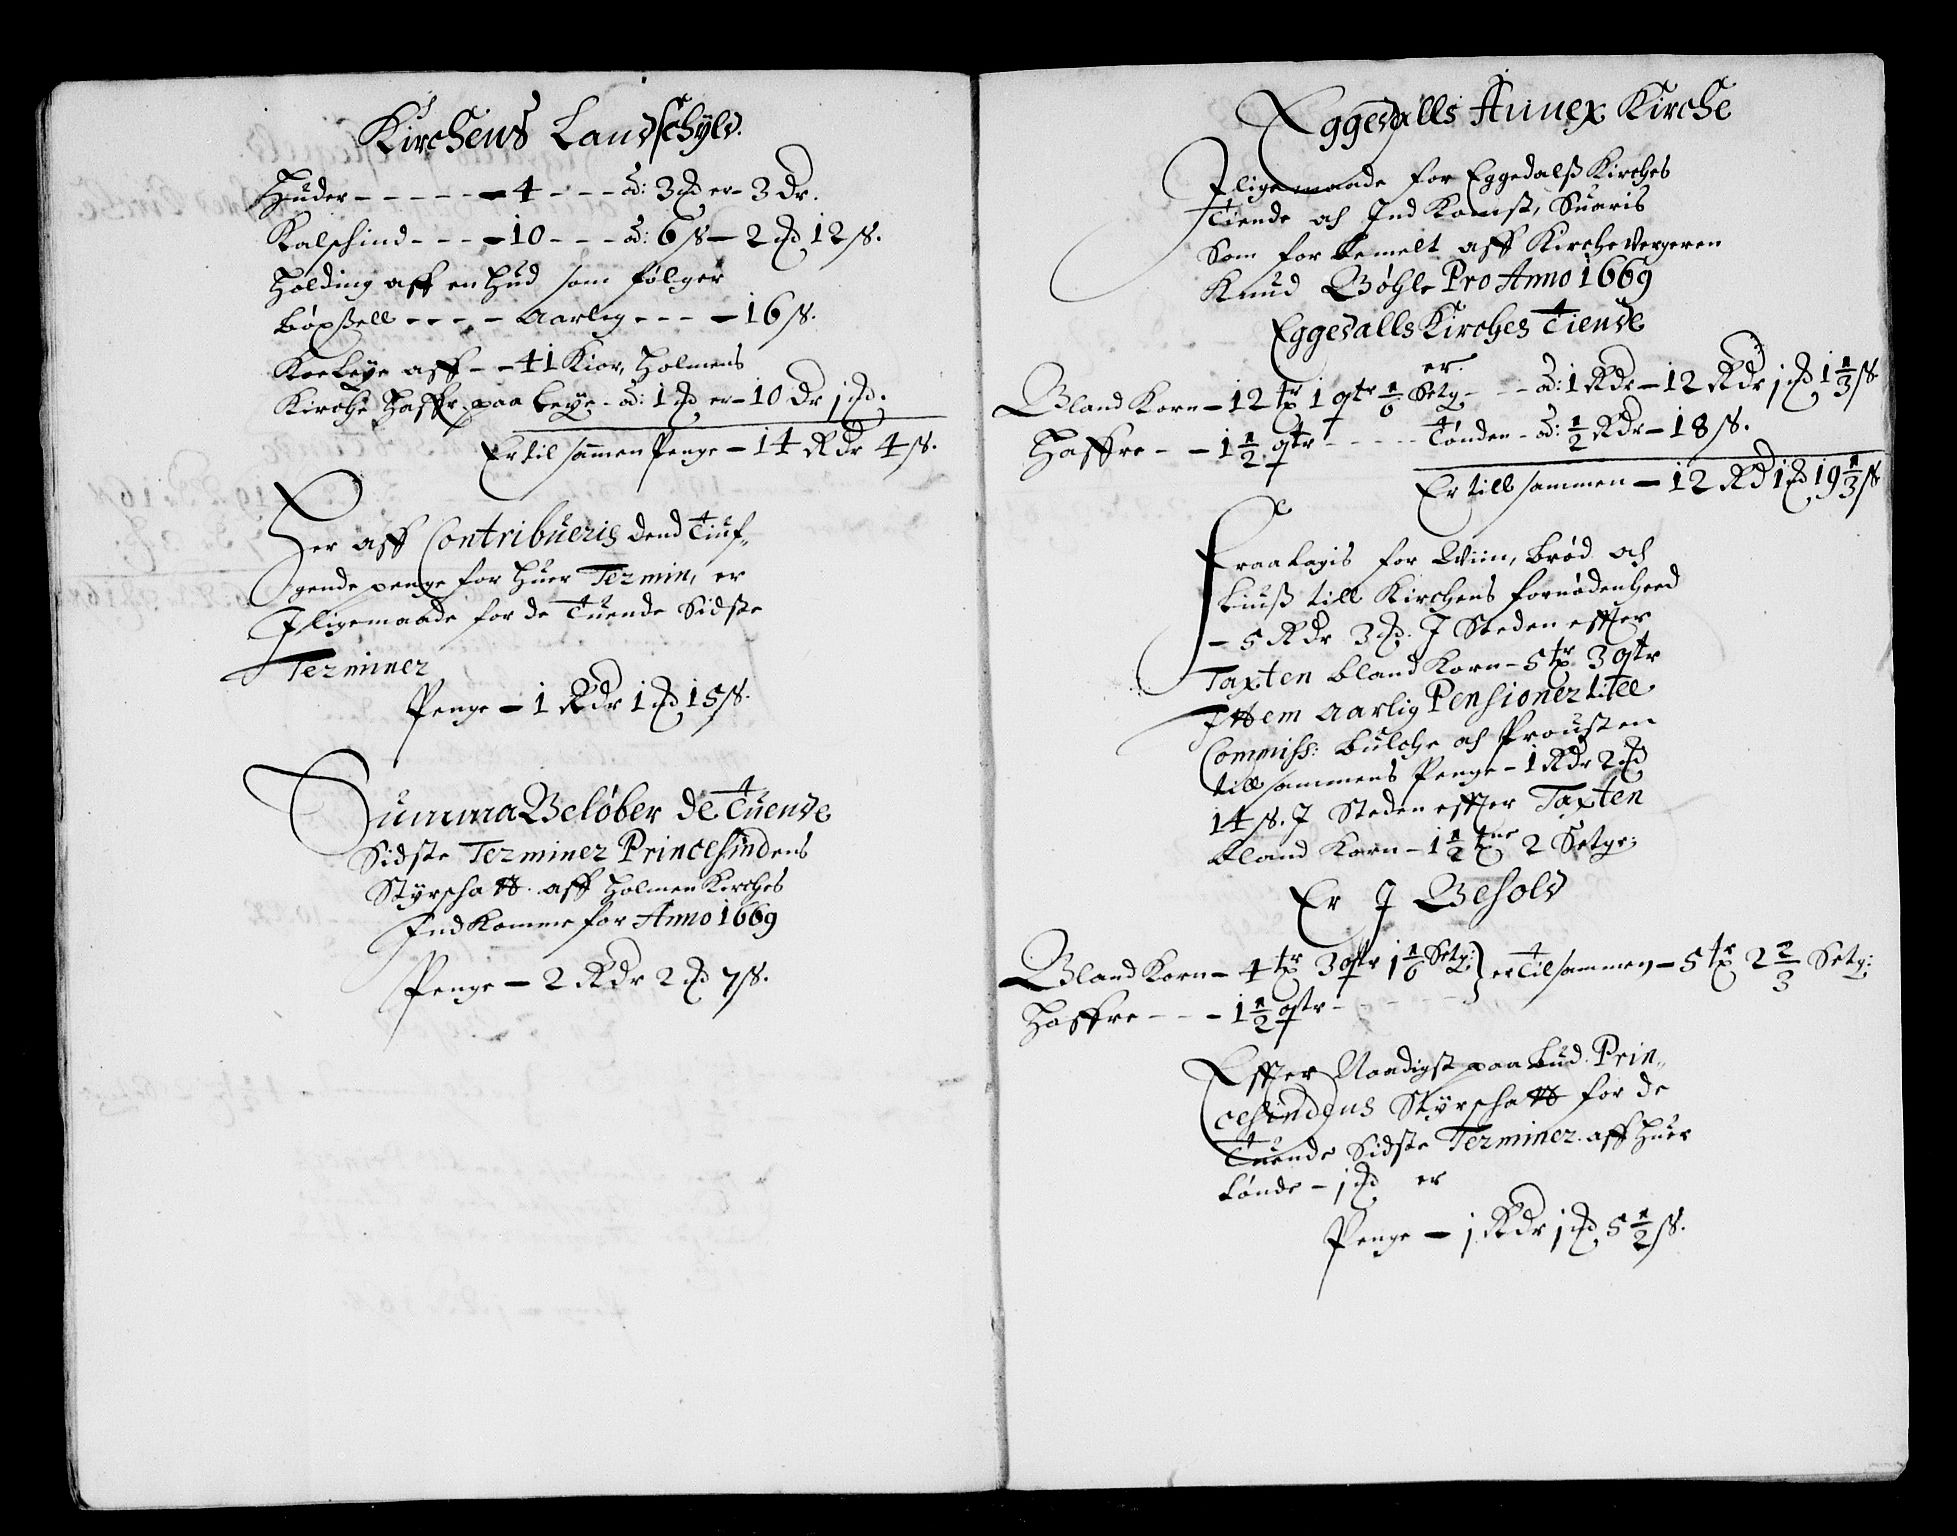 Kirchens Landschyld.
Huder - - - - - - 4 - - - ad: 3 # er - 3 Dr.
Kalfschind - - - - 10 - - - ad: 6 ß - 2 # 12 ß.
Holding aff en Hud som følger
bøxsell - - - - - Aarlig - - - - 16 ß.
Koeleye aff - - 41 Kiør, Holmens
Kirche Haffr paa leye - ad: 1 # er - 10 Dr j #.
Er til sammen Penge - 14 Rdr 4 ß.
Her aff Contribueris dend Tiuf-
gende penge for Huer Termin, er
Iligemaade for de Tuende Sidste
Terminer
Penge - 1 Rdr 1 # 15 ß.
Summa Beløber de Tuende
Sidste Terminer Princesindens
Styrschatt aff Holmen Kirches
Ind Komme for Anno 1669
Penge - 2 Rdr 2 # 7 ß.
Eggedalls Annex Kirche
Iligemaade for Eggedalß Kirches
Tiende och Ind Komst, Suaris
Som for bemelt aff Kirche Vergeren
Knud Bøhle Pro Anno 1669
Eggedalls Kirches Tiende
er.
Bland Korn - 12 tr 1 qtr 1/6 Setg - - - ad: 1 Rdr - 12 Rdr j # 1 1/3 ß
Haffre - - 1 1/2 qtr - - - - - Tønden - ad: 1/2 Rdr - 18 ß.
Er till sammen - 12 Rd 1 # 19 1/3 ß
Fraa tagis for Wiin, brød och
Liuß till Kirchens fornødenheed
- 5 Rdr 3 #. I Steden effter
Taxten bland Korn - 5 tr 3 qtr
Ittem Aarlig Pensioner till
Commiss: bulche och Prousten
till sammens Penge - 1 Rdr 2 #
14 ß. I Steden effter Taxten
bland Korn - 1 1/2 tne 2 Setge:
Er I Behold
Bland Korn - 4 tr 3 qtr 1 1/6 Setg: } er Tilsammen - 5 tr 2 2/3 Setg:
Haffre - - - 1 1/2 qtr -
Effter Naadigst paa bud Prin-
cesindens Styrschatt for de
Tuende Sidste Terminer aff Huer
tønde - j # er
Penge - j Rdr j # 5 1/2 ß.